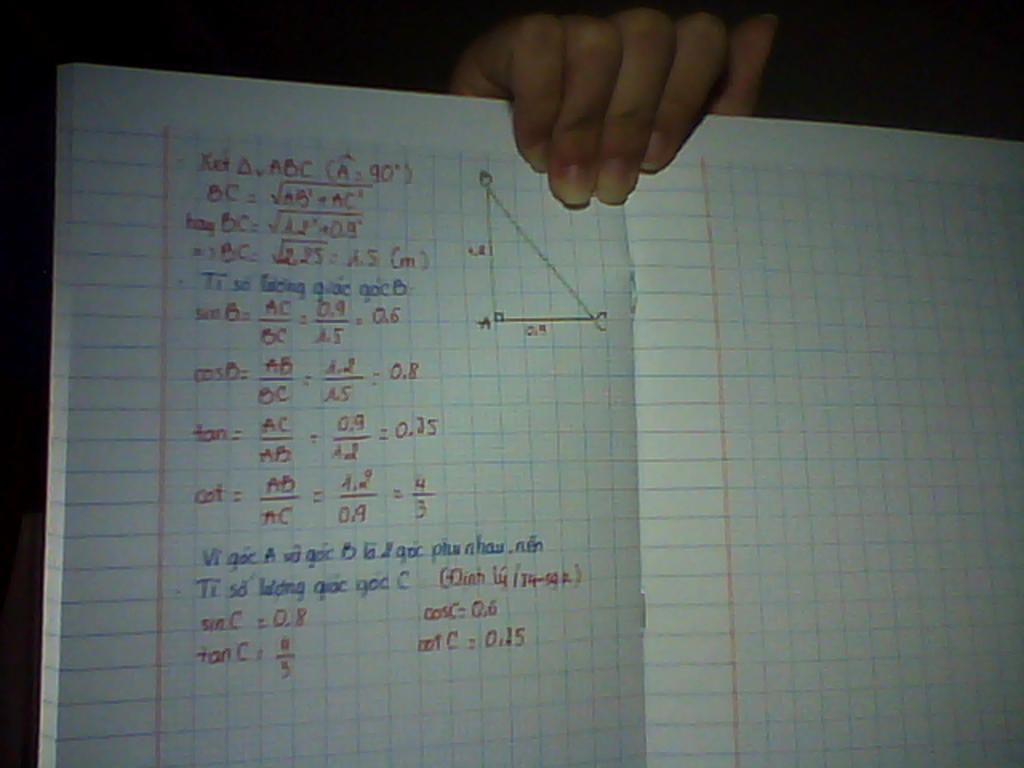 Xét Δv ABC (Â = 90°)
BC = √AB² + AC²
hay BC = √1,2² + 0,9²
=> BC = √2,25 = 1,5 (m)
Tỉ số lượng giác góc B
sinB = AC/BC = 0,9/1,5 = 0,6
cosB = AB/BC = 1,2/1,5 = 0,8
tan = AC/AB = 0,9/1,2 = 0,75
cot = AB/AC = 1,2/0,9 = 4/3
Vì góc A và góc B là 2 góc phụ nhau, nên
Tỉ số lượng giác góc C (Định lý/74-sgk)
sinC = 0,8 cosC = 0,6
tanC = 4/3 cotC = 0,75
B
1,2
A C
0,9